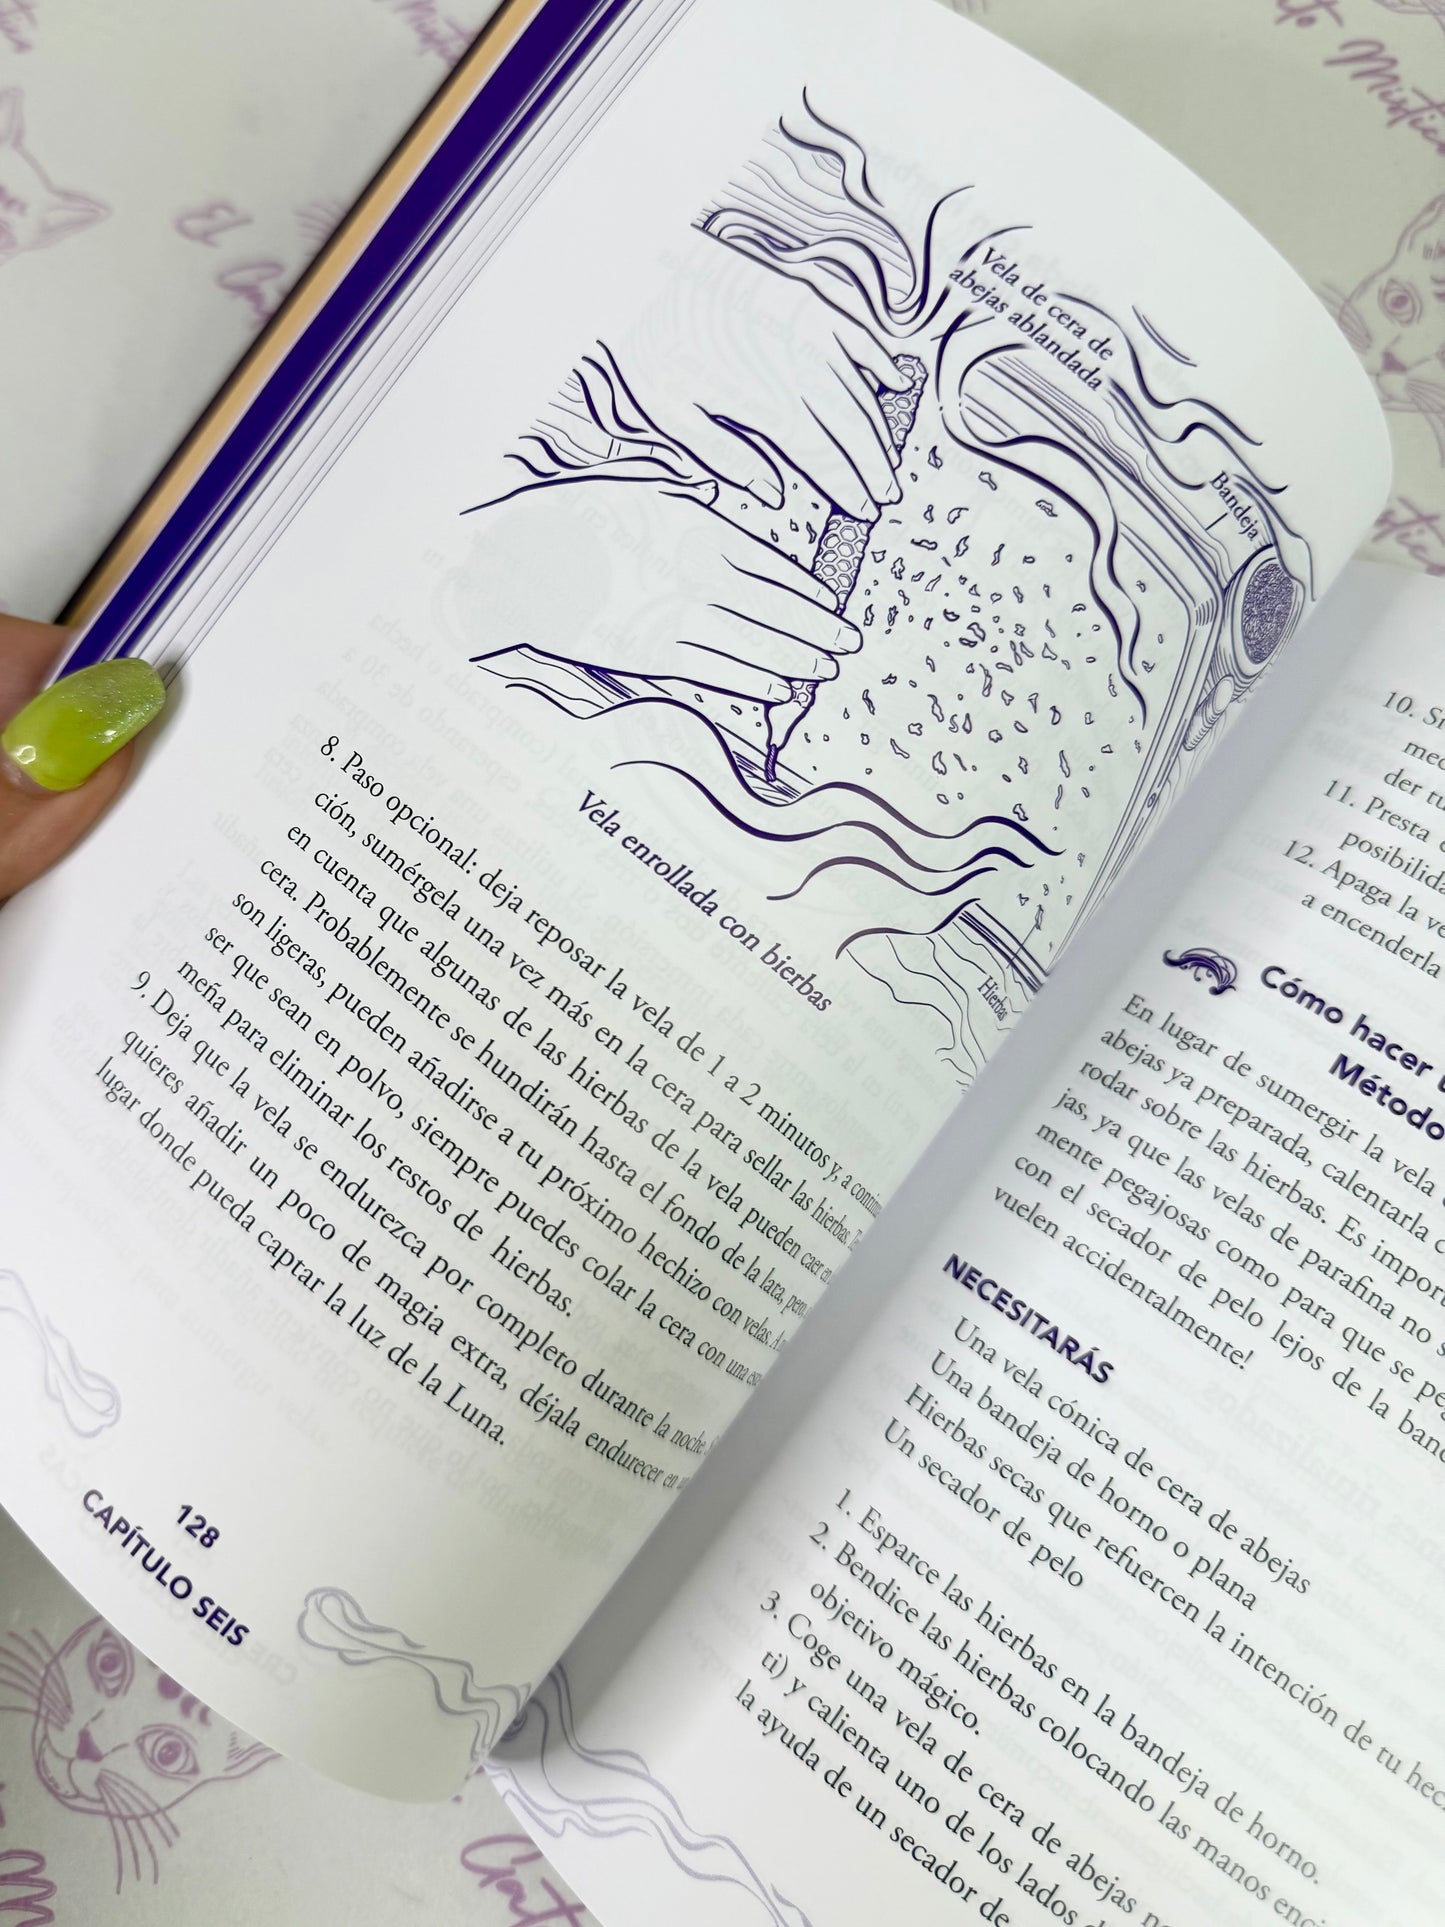 Vela de cera de
abejas ablandada
Bandeja
Hierbas
Vela enrollada con hierbas
8. Paso opcional: deja reposar la vela de 1 a 2 minutos y, a continua-
ción, sumérgela una vez más en la cera para sellar las hierbas. Ten
en cuenta que algunas de las hierbas de la vela pueden caer en
cera. Probablemente se hundirán hasta el fondo de la lata, pero,
son ligeras, pueden añadirse a tu próximo hechizo con velas. A
ser que sean en polvo, siempre puedes colar la cera con una
meña para eliminar los restos de hierbas.
9. Deja que la vela se endurezca por completo durante la noche.
quieres añadir un poco de magia extra, déjala endurecer en un
lugar donde pueda captar la luz de la Luna.
128
CAPÍTULO SEIS
10. Si
med
der tu
11. Presta
posibilida
12. Apaga la ve
a encenderla
Cómo hacer
Método
En lugar de sumergir la vela
abejas ya preparada, calentarla
rodar sobre las hierbas. Es import
jas, ya que las velas de parafina no
mente pegajosas como para que se peg
con el secador de pelo lejos de la band
vuelen accidentalmente!
NECESITARÁS
Una vela cónica de cera de abejas
Una bandeja de horno o plana
Hierbas secas que refuercen la intención de tu hec
Un secador de pelo
1. Esparce las hierbas en la bandeja de horno.
2. Bendice las hierbas colocando las manos enci
objetivo mágico.
3. Coge una vela de cera de abejas
ti) y calienta uno de los lados
la ayuda de un secador de
El Gato
Místico